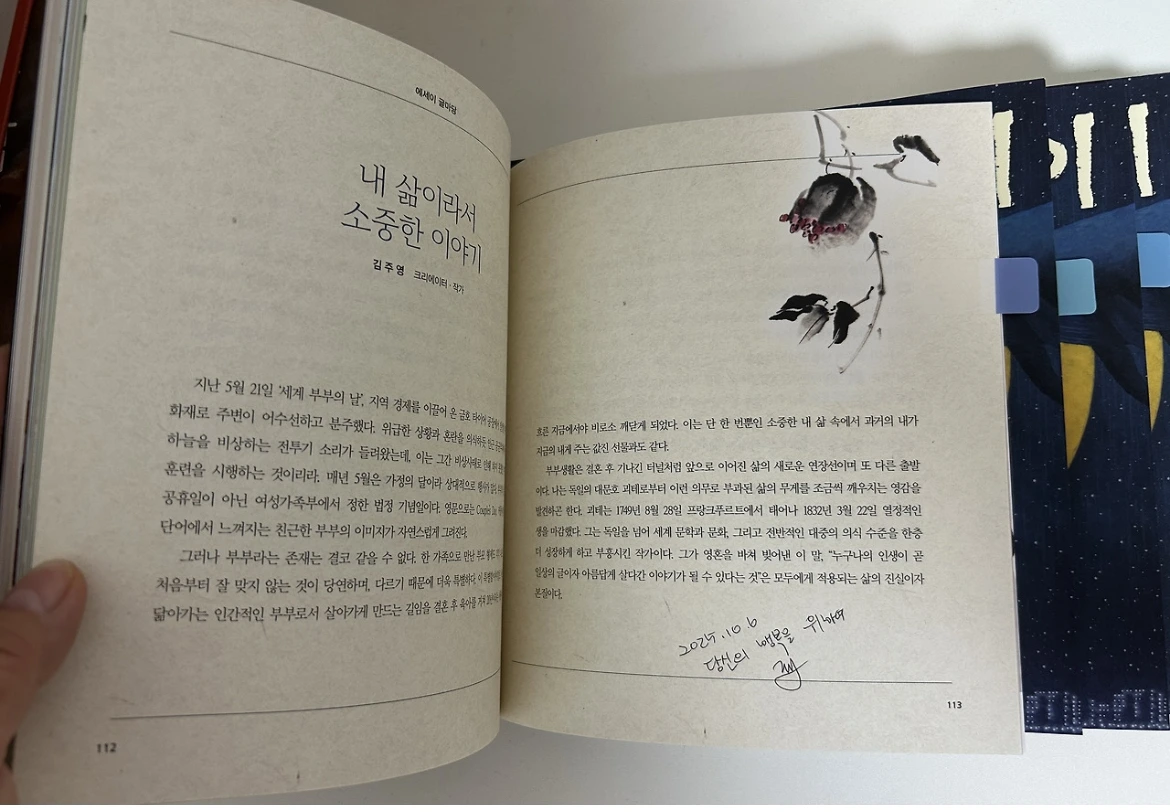 에세이 글마당
내 삶이라서
소중한 이야기
김주영 크리에이터·작가
지난 5월 21일 '세계 부부의 날', 지역 경제를 이끌어 온 금호 타이어
화재로 주변이 어수선하고 분주했다. 위급한 상황과 혼란을 의식하듯
하늘을 비상하는 전투기 소리가 들려왔는데, 이는 그간 비상사태로 인해
훈련을 시행하는 것이리라. 매년 5월은 가정의 달이라 상대적으로
공휴일이 아닌 여성가족부에서 정한 법정 기념일이다. 영문으로는 Couple's Day,
단어에서 느껴지는 친근한 부부의 이미지가 자연스럽게 그려진다.
그러나 부부라는 존재는 결코 같을 수 없다. 한 가족으로 만난
처음부터 잘 맞지 않는 것이 당연하며, 다르기 때문에 더욱 특별하다. 이
닮아가는 인간적인 부부로서 살아가게 만드는 길임을 결혼 후 육아를 거쳐
112
흐른 지금에서야 비로소 깨닫게 되었다. 이는 단 한 번뿐인 소중한 내 삶 속에서 과거의 내가
지금의 내게 주는 값진 선물과도 같다.
부부생활은 결혼 후 기나긴 터널처럼 앞으로 이어진 삶의 새로운 연장선이며 또 다른 출발
이다. 나는 독일의 대문호 괴테로부터 이런 의무로 부과된 삶의 무게를 조금씩 깨우치는 영감을
발견하곤 한다. 괴테는 1749년 8월 28일 프랑크푸르트에서 태어나 1832년 3월 22일 열정적인
생을 마감했다. 그는 독일을 넘어 세계 문학과 문화, 그리고 전반적인 대중의 의식 수준을 한층
더 성장하게 하고 부흥시킨 작가이다. 그가 영혼을 바쳐 빚어낸 이 말, “누구나의 인생이 곧
일상의 글이자 아름답게 살다간 이야기가 될 수 있다는 것”은 모두에게 적용되는 삶의 진실이자
본질이다.
2025.10.6
당신의 행복을 위하여
113